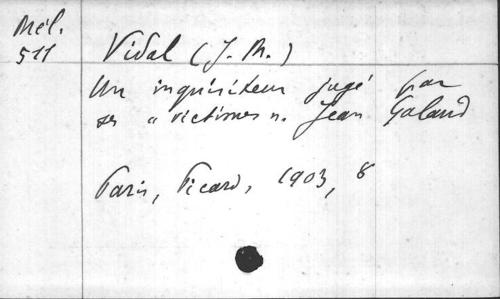 Mél.
511
Vidal (J. M.)
Un inquisiteur jugé par
ses "victimes". Jean Galand
Paris, Picard, 1903, 8